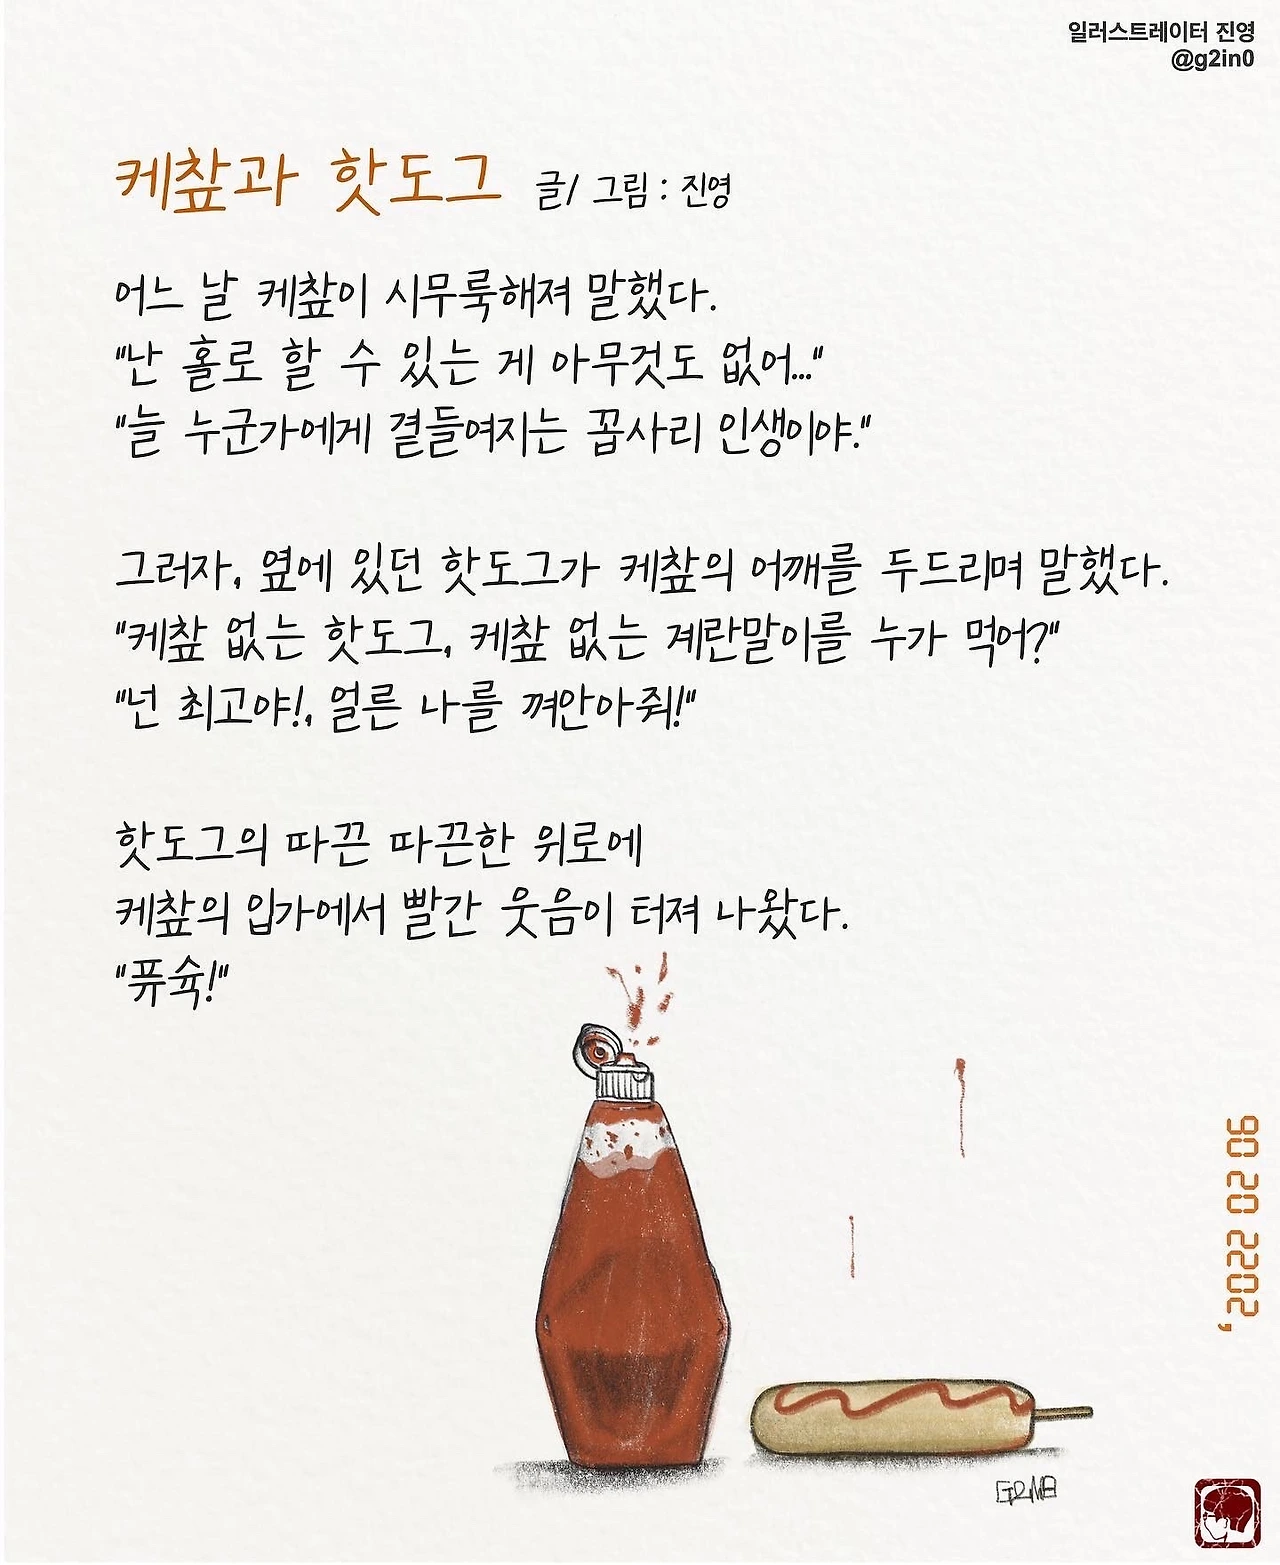 일러스트레이터 진영
@g2in0
케찲과 핫도그 글/ 그림 : 진영
어느 날 케찲이 시무룩해져 말했다.
"난 홀로 할 수 있는 게 아무것도 없어..."
"늘 누군가에게 곁들여지는 꼽사리 인생이야."
그러자, 옆에 있던 핫도그가 케찲의 어깨를 두드리며 말했다.
"케찲 없는 핫도그, 케찲 없는 계란말이를 누가 먹어?"
"넌 최고야!, 얼른 나를 껴안아줘!"
핫도그의 따끈 따끈한 위로에
케찲의 입가에서 빨간 웃음이 터져 나왔다.
"퓨슉!"
90 20 2202,